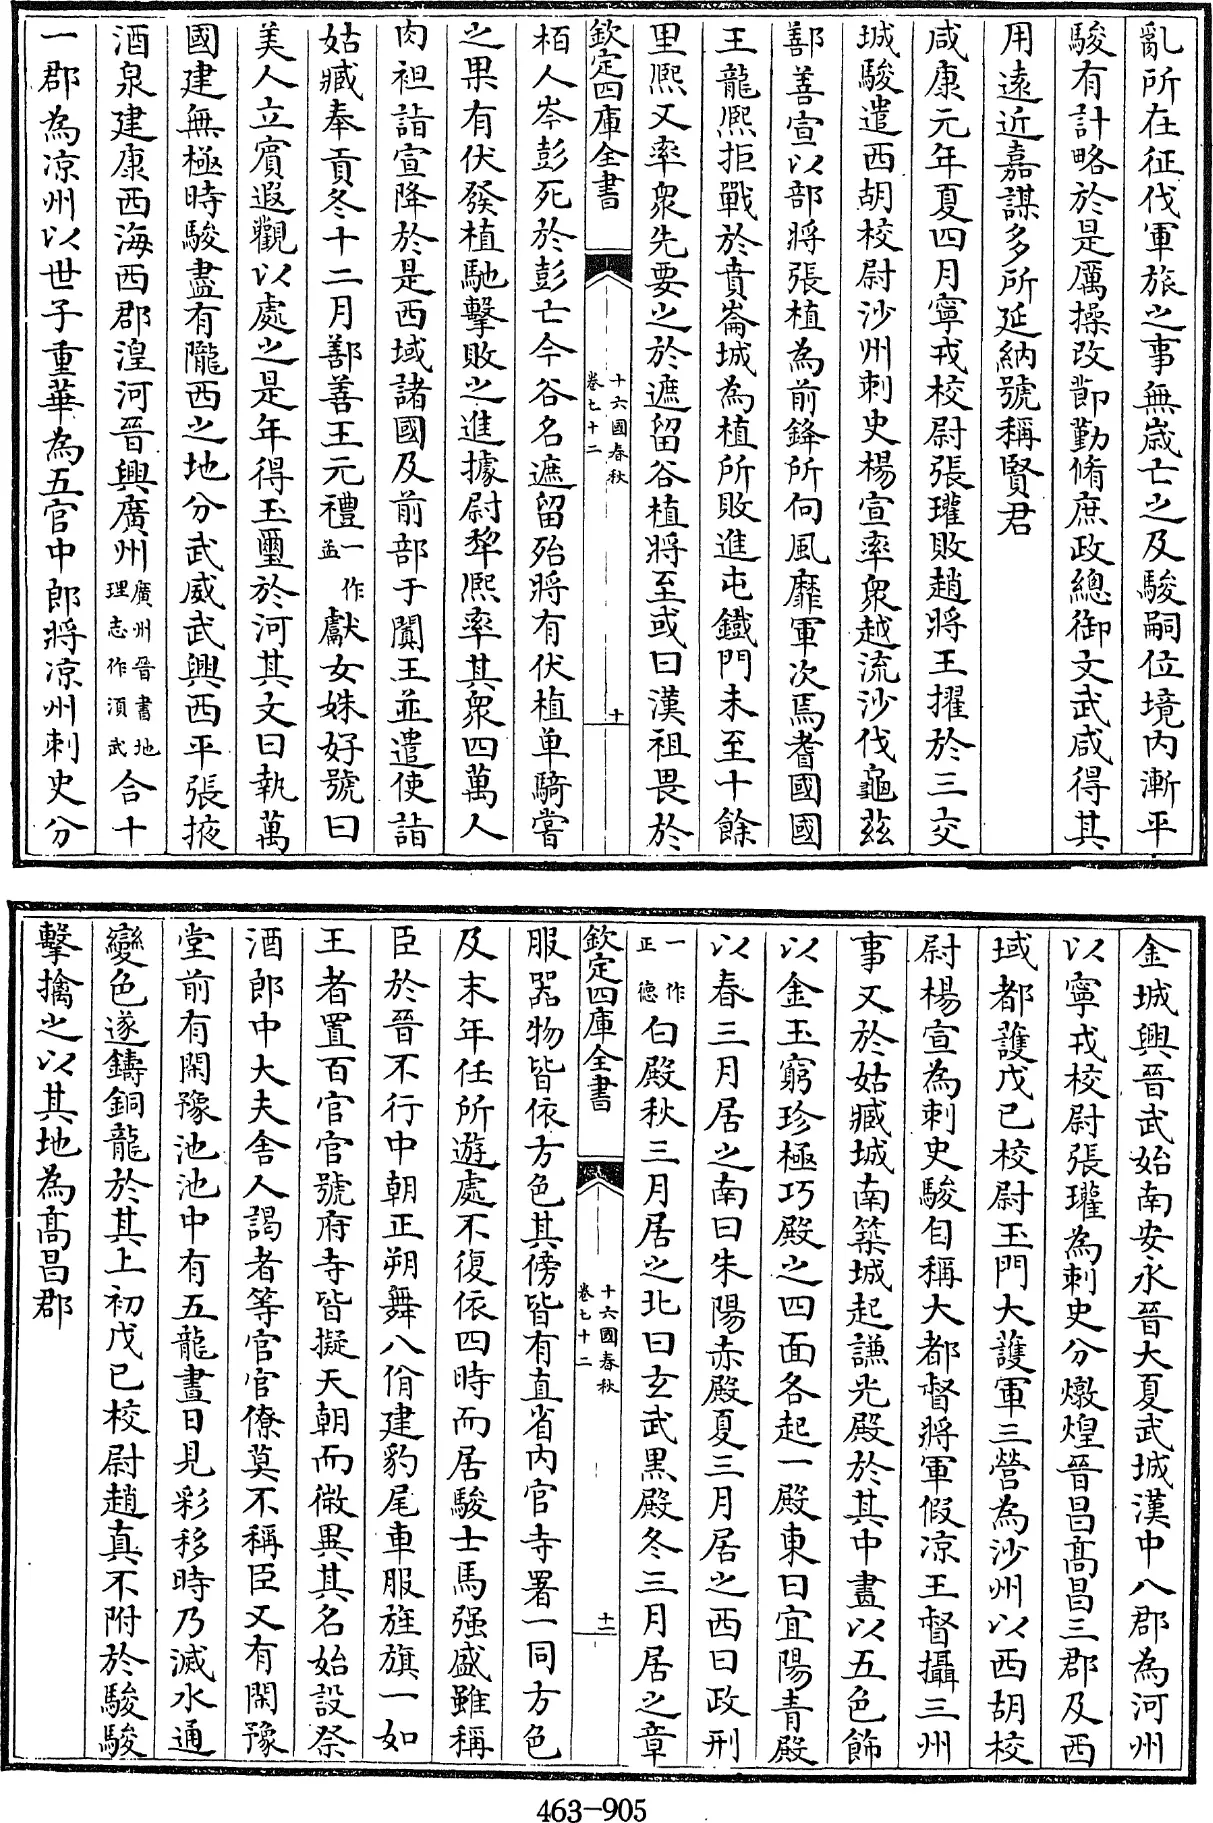 亂所在征伐軍旅之事無歳亡之及駿嗣位境内漸平
駿有計略於是厲操改節勤脩庶政總御文武咸得其
用逺近嘉謀多所延納號稱賢君
咸康元年夏四月寧戎校尉張瓘敗趙將王擢於三交
城駿遣西胡校尉沙州刺史楊宣率衆越流沙伐龜兹
鄯善宣以部將張植為前鋒所向風靡軍次焉耆國國
王龍熈拒戰於賁崙城為植所敗進屯鐵門未至十餘
里熈又率衆先要之於遮留谷植將至或曰漢祖畏於
欽定四庫全書
十六國春秋
卷七十二
十
栢人岑彭死於彭亡今谷名遮留殆將有伏植单騎嘗
之果有伏發植馳擊敗之進據尉犂熈率其衆四萬人
肉袒詣宣降於是西域諸國及前部于闐王並遣使詣
姑臧奉貢冬十二月鄯善王元禮一作孟獻女姝好號曰
美人立賔遐觀以處之是年得玉璽於河其文曰執萬
國建無極時駿盡有隴西之地分武威武興西平張掖
酒泉建康西海西郡湟河晉興廣州廣州晉書地理志作湏武合十
一郡為凉州以世子重華為五官中郎將凉州刺史分
金城興晉武始南安永晉大夏武城漢中八郡為河州
以寧戎校尉張瓘為刺史分燉煌晉昌髙昌三郡及西
域都護戊已校尉玉門大護軍三營為沙州以西胡校
尉楊宣為刺史駿自稱大都督將軍假凉王督攝三州
事又於姑臧城南築城起謙光殿於其中畫以五色飾
以金玉窮珍極巧殿之四面各起一殿東曰宜陽青殿
以春三月居之南曰朱陽赤殿夏三月居之西曰政刑
一作正德白殿秋三月居之北曰玄武黒殿冬三月居之章
欽定四庫全書
十六國春秋
卷七十二
十一
服器物皆依方色其傍皆有直省内官寺署一同方色
及末年任所遊處不復依四時而居駿士馬强盛雖稱
臣於晉不行中朝正朔舞八佾建豹尾車服旌旗一如
王者置百官官號府寺皆擬天朝而微異其名始設祭
酒郎中大夫舍人謁者等官官僚莫不稱臣又有閑豫
堂前有閑豫池池中有五龍晝日見彩移時乃滅水通
變色遂鑄銅龍於其上初戊已校尉趙真不附於駿駿
擊擒之以其地為髙昌郡
463-905